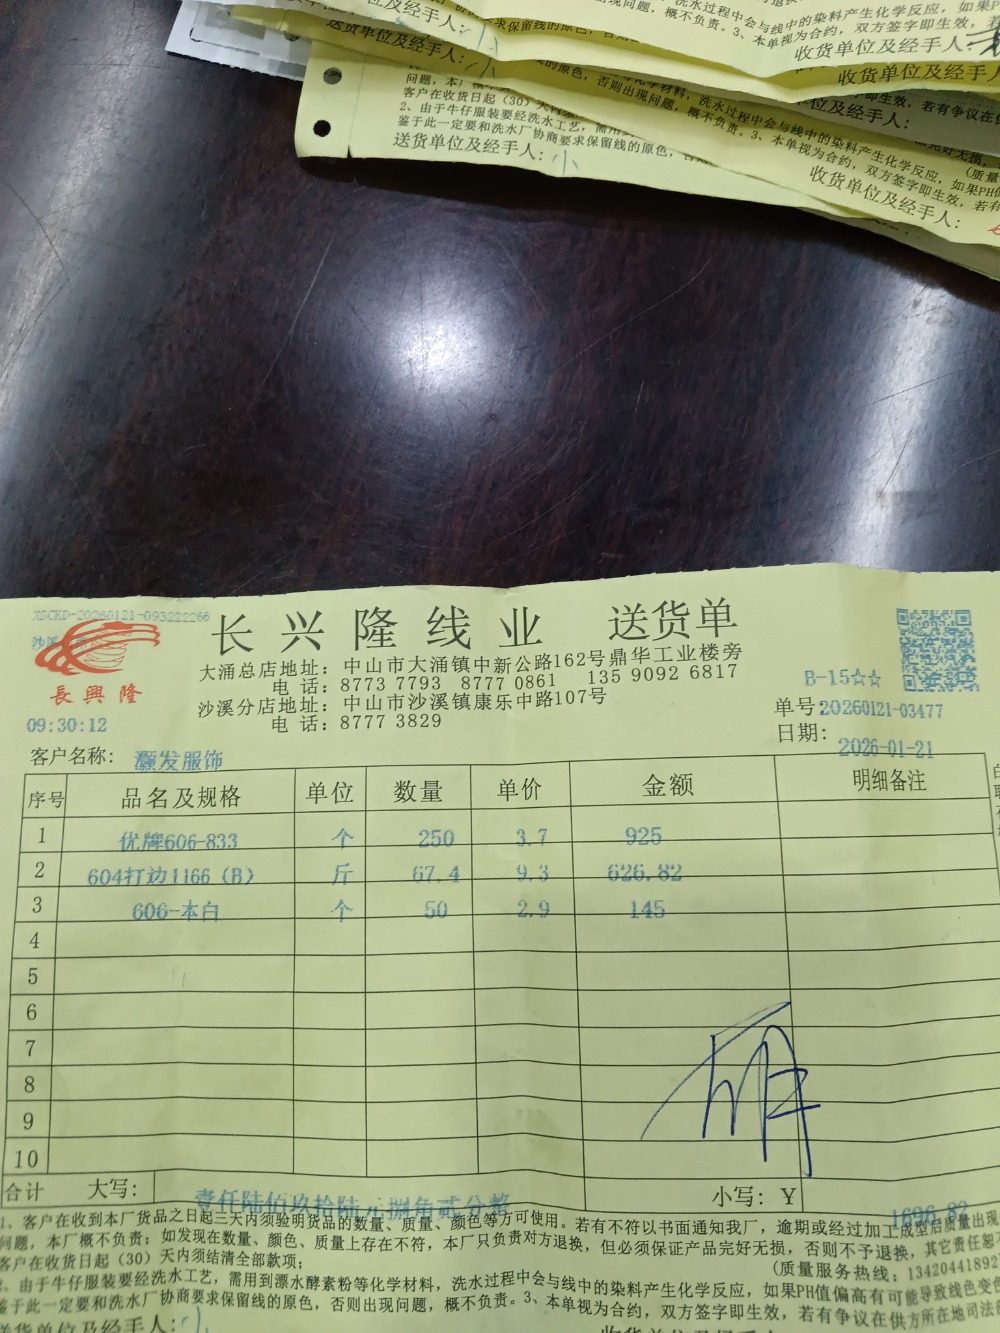 送货单位及经手人:
收货单位及经手人:
洗水过程中会与线中的染料产生化学反应,如果PH值
概不负责。3、本单视为合约,双方签字即生效,若有
收货单位及经手人:
客户在收货日起(30)天内
2、由于牛仔服装要经洗水工艺,需用
鉴于此一定要和洗水厂协商要求保留线的原色,
送货单位及经手人:小
收货单位及经手人:
XSCKD-20260121-093222266
長興隆
09:30:12
长兴隆线业 送货单
大涌总店地址:中山市大涌镇中新公路162号鼎华工业楼旁
电 话:8773 7793 8777 0861 135 9092 6817
沙溪分店地址:中山市沙溪镇康乐中路107号
电 话:8777 3829
B-15☆☆
单号:20260121-03477
日期:2026-01-21
客户名称:灏发服饰
序号 品名及规格 单位 数量 单价 金额 明细备注
1 优牌606-833 个 250 3.7 925
2 604打边1166(B) 斤 67.4 9.3 626.82
3 606-本白 个 50 2.9 145
4
5
6
7
8
9
10
合计 大写: 壹仟陆佰玖拾陆元捌角贰分整 小写:¥ 1696.82
1、客户在收到本厂货品之日起三天内须验明货品的数量、质量、颜色等方可使用。若有不符以书面通知我厂,逾期或经过加工成型后质量出现
问题,本厂概不负责;如发现在数量、颜色、质量上存在不符,本厂只负责对方退换,但必须保证产品完好无损,否则不予退换,其它责任恕不
客户在收货日起(30)天内须结清全部款项;
(质量服务热线:1342044189
2、由于牛仔服装要经洗水工艺,需用到漂水酵素粉等化学材料,洗水过程中会与线中的染料产生化学反应,如果PH值偏高有可能导致线色变
鉴于此一定要和洗水厂协商要求保留线的原色,否则出现问题,概不负责。3、本单视为合约,双方签字即生效,若有争议在供方所在地司法
送货单位及经手人:小
收货单位及经手人